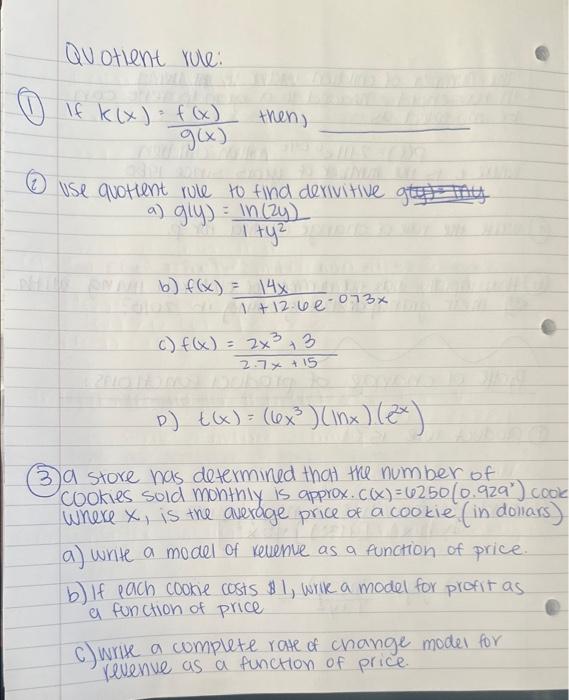 Quotient rule:
① If k(x) = f(x)/g(x) then, ________
② Use quotient rule to find derivitive
a) g(y) = ln(2y)/1+y²
b) f(x) = 14x/1+12.6e^-0.73x
c) f(x) = 2x³+3/2.7x+15
D) t(x) = (6x³)(lnx)(e²ˣ)
③ a store has determined that the number of
cookies sold monthly is approx. c(x)=6250(0.929ˣ) cook
where x, is the average price of a cookie (in dollars)
a) write a model of revenue as a function of price.
b) If each cookie costs $1, write a model for profit as
a function of price
c) write a complete rate of change model for
revenue as a function of price.